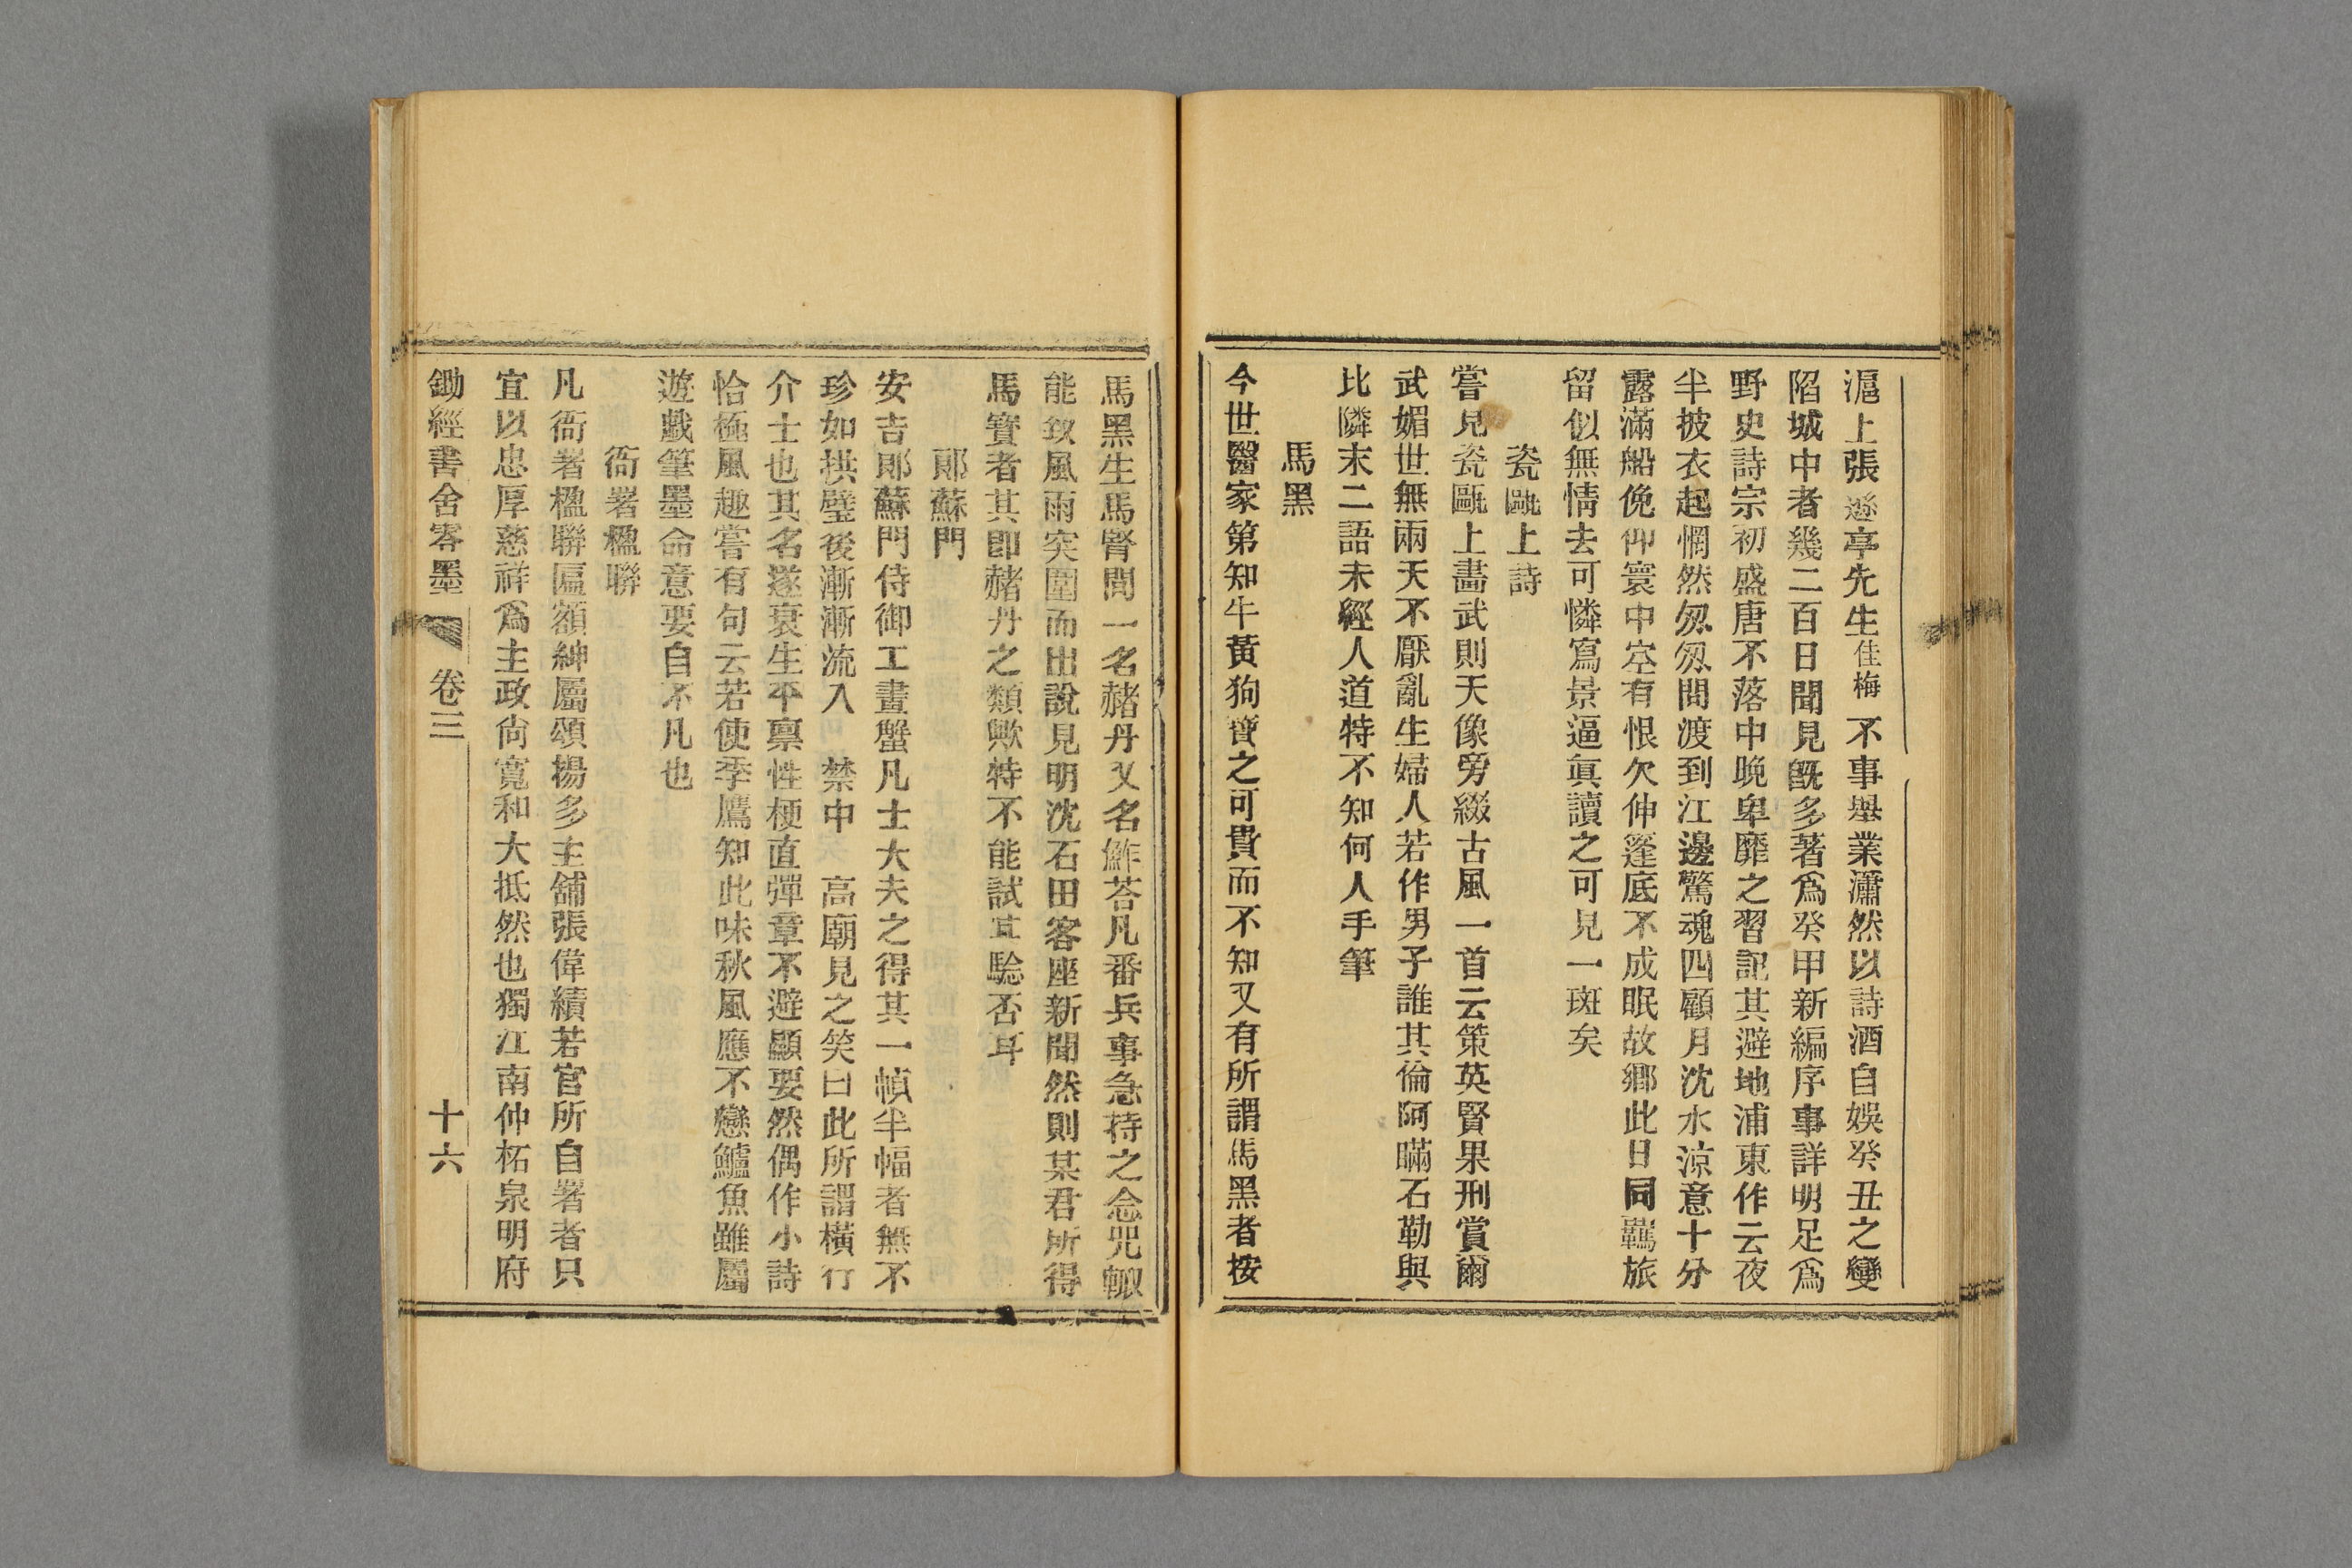 滬上張遜亭先生佳梅不事舉業瀟然以詩酒自娛癸丑之變
陷城中者幾二百日聞見旣多著爲癸甲新編序事詳明足爲
野史詩宗初盛唐不落中晚卑靡之習記其避地浦東作云夜
半披衣起惘然匆匆間渡到江邊驚魂四顧月沈水涼意十分
露滿船俛仰寰中空有恨欠伸篷底不成眠故鄉此日同羈旅
留似無情去可憐寫景逼眞讀之可見一斑矣
瓷甌上詩
嘗見瓷甌上畵武則天像旁綴古風一首云策英賢果刑賞爾
武媚世無兩天不厭亂生婦人若作男子誰其倫阿瞞石勒與
比隣末二語未經人道特不知何人手筆
馬黑
今世醫家第知牛黃狗寶之可貴而不知又有所謂馬黑者按
馬黑生馬腎間一名赭丹又名鮓荅凡番兵事急持之念咒輙
能致風雨突圍而出說見明沈石田客座新聞然則某君所得
馬寶者其卽赭丹之類歟特不能試其驗否耳
郎蘇門
安吉郎蘇門侍御工畫蟹凡士大夫之得其一幀半幅者無不
珍如拱璧後漸漸流入禁中高廟見之笑曰此所謂橫行
介士也其名遂衰生平禀性梗直彈章不避顯要然偶作小詩
恰極風趣嘗有句云若使季鷹知此味秋風應不戀鱸魚雖屬
遊戲筆墨命意要自不凡也
衙署楹聯
凡衙署楹聯匾額紳屬頌揚多主舖張偉績若官所自署者只
宜以忠厚慈祥爲主政尙寬和大抵然也獨江南仲柘泉明府
鋤經書舍零墨 卷三 十六